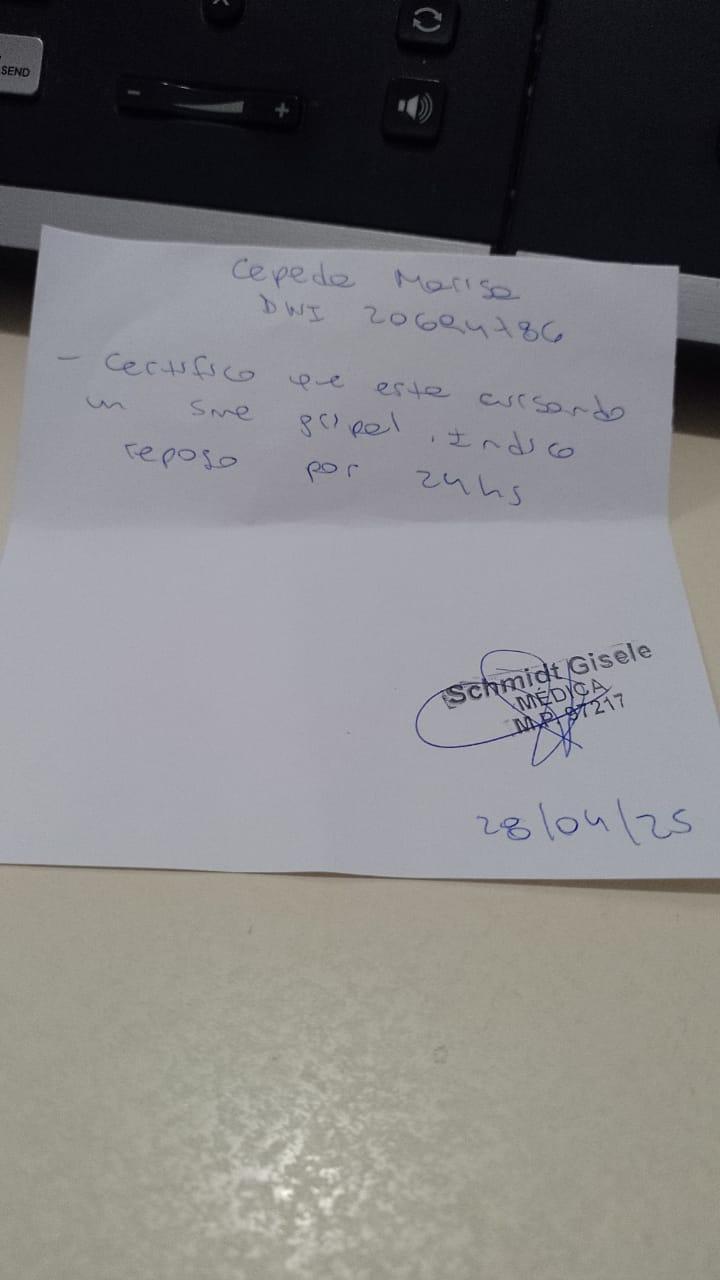 SEND
- +
Cepeda Marisa
DNI
- Certifico que esta cursando
un Sme gripal. Indico
reposo por 24hs
Schmidt Gisele
MÉDICA
M.P. 97217
28/04/25